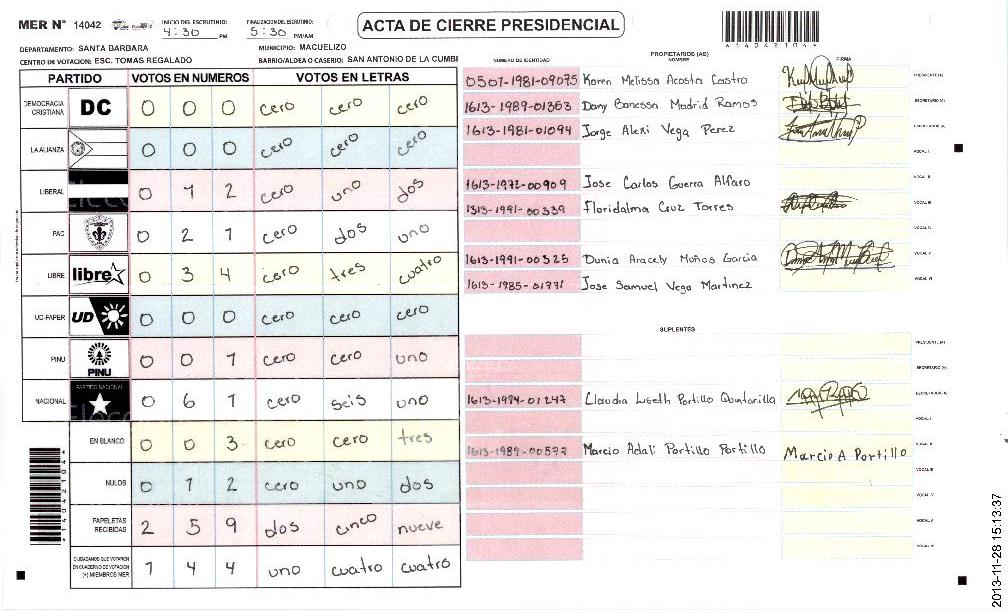 MER Nº 14042 INICIO DEL ESCRUTINIO: 4:30 PM FINALIZACION DEL ESCRUTINIO: 5:30 PM/AM ACTA DE CIERRE PRESIDENCIAL
*14042104*
DEPARTAMENTO: SANTA BARBARA MUNICIPIO: MACUELIZO
CENTRO DE VOTACION: ESC. TOMAS REGALADO BARRIO/ALDEA O CASERIO: SAN ANTONIO DE LA CUMBI
PARTIDO VOTOS EN NUMEROS VOTOS EN LETRAS
DEMOCRACIA CRISTIANA DC 0 0 0 cero cero cero
LA ALIANZA 0 0 0 cero cero cero
LIBERAL 0 1 2 cero uno dos
PAC 0 2 1 cero dos uno
LIBRE libre 0 3 4 cero tres cuatro
UD-FAPER UD 0 0 0 cero cero cero
PINU PINU 0 0 1 cero cero uno
NACIONAL PARTIDO NACIONAL 0 6 1 cero seis uno
EN BLANCO 0 0 3 cero cero tres
NULOS 0 1 2 cero uno dos
PAPELETAS RECIBIDAS 2 5 9 dos cinco nueve
CIUDADANOS QUE VOTARON EN CUADERNO DE VOTACION (+) MIEMBROS MER 1 4 4 uno cuatro cuatro
*14042104*
PROPIETARIOS (AS)
NUMERO DE IDENTIDAD NOMBRE FIRMA
0507-1981-09075 Karen Melissa Acosta Castro PRESIDENTE (A)
1613-1989-01363 Dany Banessa Madrid Ramos SECRETARIO (A)
1613-1981-01094 Jorge Alexi Vega Perez ESCRUTADOR (A)
VOCAL I
1613-1972-00909 Jose Carlos Guerra Alfaro VOCAL II
1313-1991-00339 Floridalma Cruz Torres VOCAL III
VOCAL IV
1613-1991-00325 Dunia Aracely Muños Garcia VOCAL V
1613-1985-01771 Jose Samuel Vega Martinez VOCAL VI
SUPLENTES
PRESIDENTE (A)
SECRETARIO (A)
1613-1984-01247 Claudia Liseth Portillo Quintanilla ESCRUTADOR (A)
VOCAL I
1613-1989-00597 Marcio Adali Portillo Portillo Marcio A Portillo VOCAL II
VOCAL III
VOCAL IV
VOCAL V
VOCAL VI
2013-11-28 15:13:37